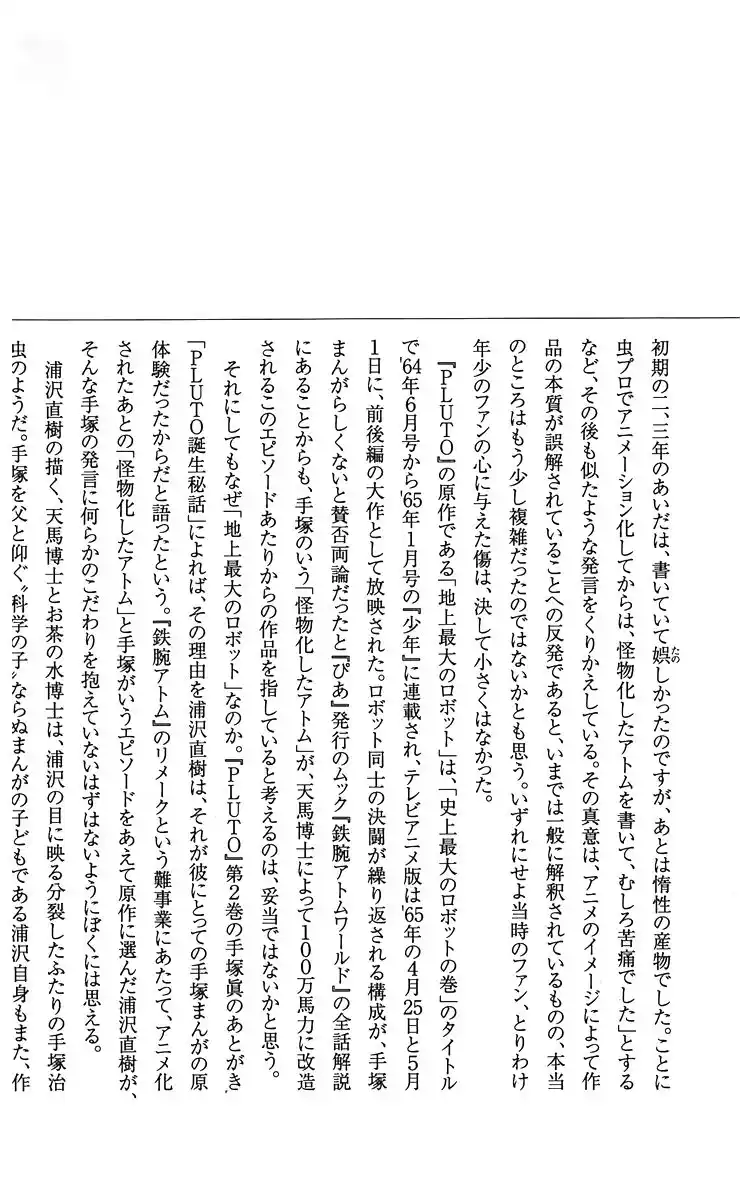 初期の二、三年のあいだは、書いていて娯しかったのですが、あとは惰性の産物でした。ことに
たの
虫プロでアニメーション化してからは、怪物化したアトムを書いて、むしろ苦痛でした」とする
など、その後も似たような発言をくりかえしている。その真意は、アニメのイメージによって作
品の本質が誤解されていることへの反発であると、いまでは一般に解釈されているものの、本当
のところはもう少し複雑だったのではないかとも思う。いずれにせよ当時のファン、とりわけ
年少のファンの心に与えた傷は、決して小さくはなかった。
『PLUTO』の原作である「地上最大のロボット」は、「史上最大のロボットの巻」のタイトル
で'64年6月号から'65年1月号の『少年』に連載され、テレビアニメ版は'65年の4月25日と5月
1日に、前後編の大作として放映された。ロボット同士の決闘が繰り返される構成が、手塚
まんがらしくないと賛否両論だったと『ぴあ』発行のムック『鉄腕アトムワールド』の全話解説
にあることからも、手塚のいう「怪物化したアトム」が、天馬博士によって100万馬力に改造
されるこのエピソードあたりからの作品を指していると考えるのは、妥当ではないかと思う。
それにしてもなぜ「地上最大のロボット」なのか。『PLUTO』第2巻の手塚眞のあとがき
「PLUTO誕生秘話」によれば、その理由を浦沢直樹は、それが彼にとっての手塚まんがの原
体験だったからだと語ったという。『鉄腕アトム』のリメークという難事業にあたって、アニメ化
されたあとの「怪物化したアトム」と手塚がいうエピソードをあえて原作に選んだ浦沢直樹が、
そんな手塚の発言に何らかのこだわりを抱えていないはずはないようにぼくには思える。
浦沢直樹の描く、天馬博士とお茶の水博士は、浦沢の目に映る分裂したふたりの手塚治
虫のようだ。手塚を父と仰ぐ〝科学の子〟ならぬまんがの子どもである浦沢自身もまた、作